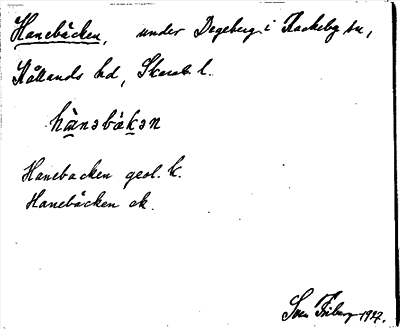 Hanebäcken, under Degeberg i Rackeby sn,
Kållands hd, Skarab. l.
hànəbäkən
Hanebacken geol. k.
Hanebäcken ek.
Sven Friberg 1927.